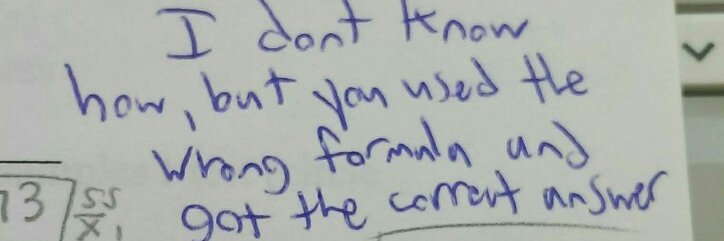 I dont know
how, but you used the
wrong formula and
got the correct answer
13
ss
x,